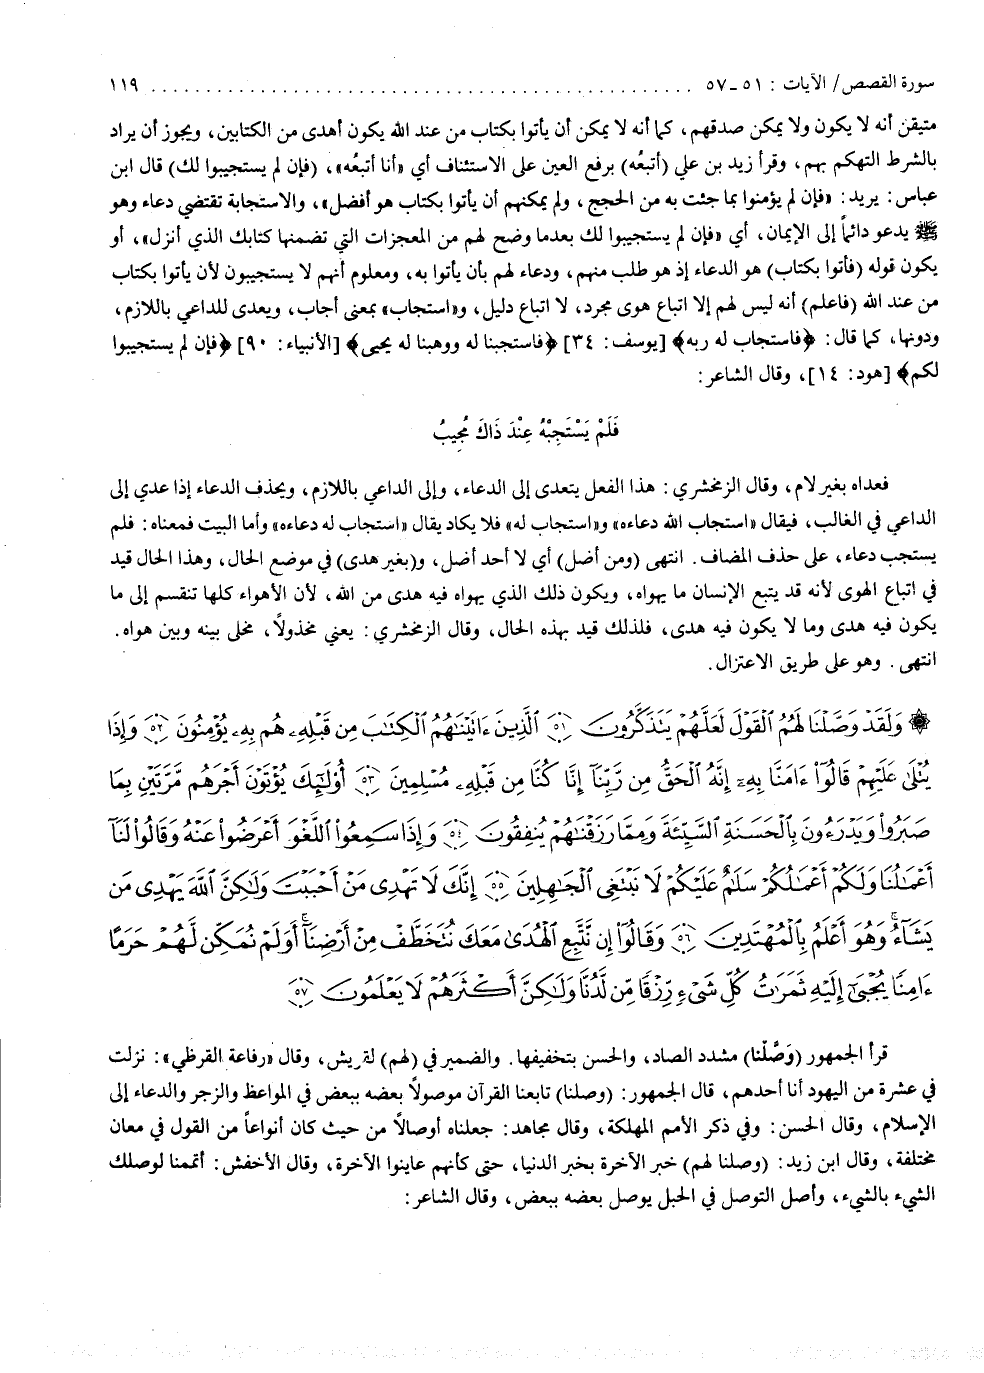 سورة القصص/ الآيات : ٥١ـ٥٧ ........................................................ ١١٩
متيقن أنه لا يكون ولا يمكن صدقهم، كما أنه لا يمكن أن يأتوا بكتاب من عند الله يكون أهدى من الكتابين، ويجوز أن يراد
بالشرط التهكم بهم، وقرأ زيد بن علي (أتبعُه) برفع العين على الاستئناف أي «أنا أتبعُه»، (فإن لم يستجيبوا لك) قال ابن
عباس: يريد: «فإن لم يؤمنوا بما جئت به من الحجج، ولم يمكنهم أن يأتوا بكتاب هو أفضل»، والاستجابة تقتضي دعاء وهو
ﷺ يدعو دائماً إلى الإيمان، أي «فإن لم يستجيبوا لك بعدما وضح لهم من المعجزات التي تضمنها كتابك الذي أنزل»، أو
يكون قوله (فأتوا بكتاب) هو الدعاء إذ هو طلب منهم، ودعاء لهم بأن يأتوا به، ومعلوم أنهم لا يستجيبون لأن يأتوا بكتاب
من عند الله (فاعلم) أنه ليس لهم إلا اتباع هوى مجرد، لا اتباع دليل، و«استجاب» بمعنى أجاب، ويعدى للداعي باللازم،
ودونها، كما قال: ﴿فاستجاب له ربه﴾ [يوسف: ٣٤] ﴿فاستجبنا له ووهبنا له يحيى﴾ [الأنبياء: ٩٠] ﴿فإن لم يستجيبوا
لكم﴾ [هود: ١٤]، وقال الشاعر:
فَلَمْ يَسْتَجِبْهُ عِنْدَ ذَاكَ مُجِيبُ
فعداه بغير لام، وقال الزمخشري: هذا الفعل يتعدى إلى الدعاء، وإلى الداعي باللازم، ويحذف الدعاء إذا عدي إلى
الداعي في الغالب، فيقال «استجاب الله دعاءه» و«استجاب له» فلا يكاد يقال «استجاب له دعاءه» وأما البيت فمعناه: فلم
يستجب دعاء، على حذف المضاف. انتهى (ومن أضل) أي لا أحد أضل، و(بغير هدى) في موضع الحال، وهذا الحال قيد
في اتباع الهوى لأنه قد يتبع الإنسان ما يهواه، ويكون ذلك الذي يهواه فيه هدى من الله، لأن الأهواء كلها تنقسم إلى ما
يكون فيه هدى وما لا يكون فيه هدى، فلذلك قيد بهذه الحال، وقال الزمخشري: يعني مخذولاً، مخلى بينه وبين هواه.
انتهى. وهو على طريق الاعتزال.
۞ وَلَقَدْ وَصَّلْنَا لَهُمُ ٱلْقَوْلَ لَعَلَّهُمْ يَتَذَكَّرُونَ ۝٥١ ٱلَّذِينَ ءَاتَيْنَٰهُمُ ٱلْكِتَٰبَ مِن قَبْلِهِۦ هُم بِهِۦ يُؤْمِنُونَ ۝٥٢ وَإِذَا
يُتْلَىٰ عَلَيْهِمْ قَالُوٓا۟ ءَامَنَّا بِهِۦٓ إِنَّهُ ٱلْحَقُّ مِن رَّبِّنَآ إِنَّا كُنَّا مِن قَبْلِهِۦ مُسْلِمِينَ ۝٥٣ أُو۟لَٰٓئِكَ يُؤْتَوْنَ أَجْرَهُم مَّرَّتَيْنِ بِمَا
صَبَرُوا۟ وَيَدْرَءُونَ بِٱلْحَسَنَةِ ٱلسَّيِّئَةَ وَمِمَّا رَزَقْنَٰهُمْ يُنفِقُونَ ۝٥٤ وَإِذَا سَمِعُوا۟ ٱللَّغْوَ أَعْرَضُوا۟ عَنْهُ وَقَالُوا۟ لَنَآ
أَعْمَٰلُنَا وَلَكُمْ أَعْمَٰلُكُمْ سَلَٰمٌ عَلَيْكُمْ لَا نَبْتَغِى ٱلْجَٰهِلِينَ ۝٥٥ إِنَّكَ لَا تَهْدِى مَنْ أَحْبَبْتَ وَلَٰكِنَّ ٱللَّهَ يَهْدِى مَن
يَشَآءُ ۚ وَهُوَ أَعْلَمُ بِٱلْمُهْتَدِينَ ۝٥٦ وَقَالُوٓا۟ إِن نَّتَّبِعِ ٱلْهُدَىٰ مَعَكَ نُتَخَطَّفْ مِنْ أَرْضِنَآ ۚ أَوَلَمْ نُمَكِّن لَّهُمْ حَرَمًا
ءَامِنًا يُجْبَىٰٓ إِلَيْهِ ثَمَرَٰتُ كُلِّ شَىْءٍ رِّزْقًا مِّن لَّدُنَّا وَلَٰكِنَّ أَكْثَرَهُمْ لَا يَعْلَمُونَ ۝٥٧
قرأ الجمهور (وَصَّلْنا) مشدد الصاد، والحسن بتخفيفها. والضمير في (لهم) لقريش، وقال «رفاعة القرظي»: نزلت
في عشرة من اليهود أنا أحدهم، قال الجمهور: (وصلنا) تابعنا القرآن موصولاً بعضه ببعض في المواعظ والزجر والدعاء إلى
الإسلام، وقال الحسن: وفي ذكر الأمم المهلكة، وقال مجاهد: جعلناه أوصالاً من حيث كان أنواعاً من القول في معان
مختلفة، وقال ابن زيد: (وصلنا لهم) خبر الآخرة بخبر الدنيا، حتى كأنهم عاينوا الآخرة، وقال الأخفش: أتممنا لوصلك
الشيء بالشيء، وأصل التوصل في الحبل يوصل بعضه ببعض، وقال الشاعر: